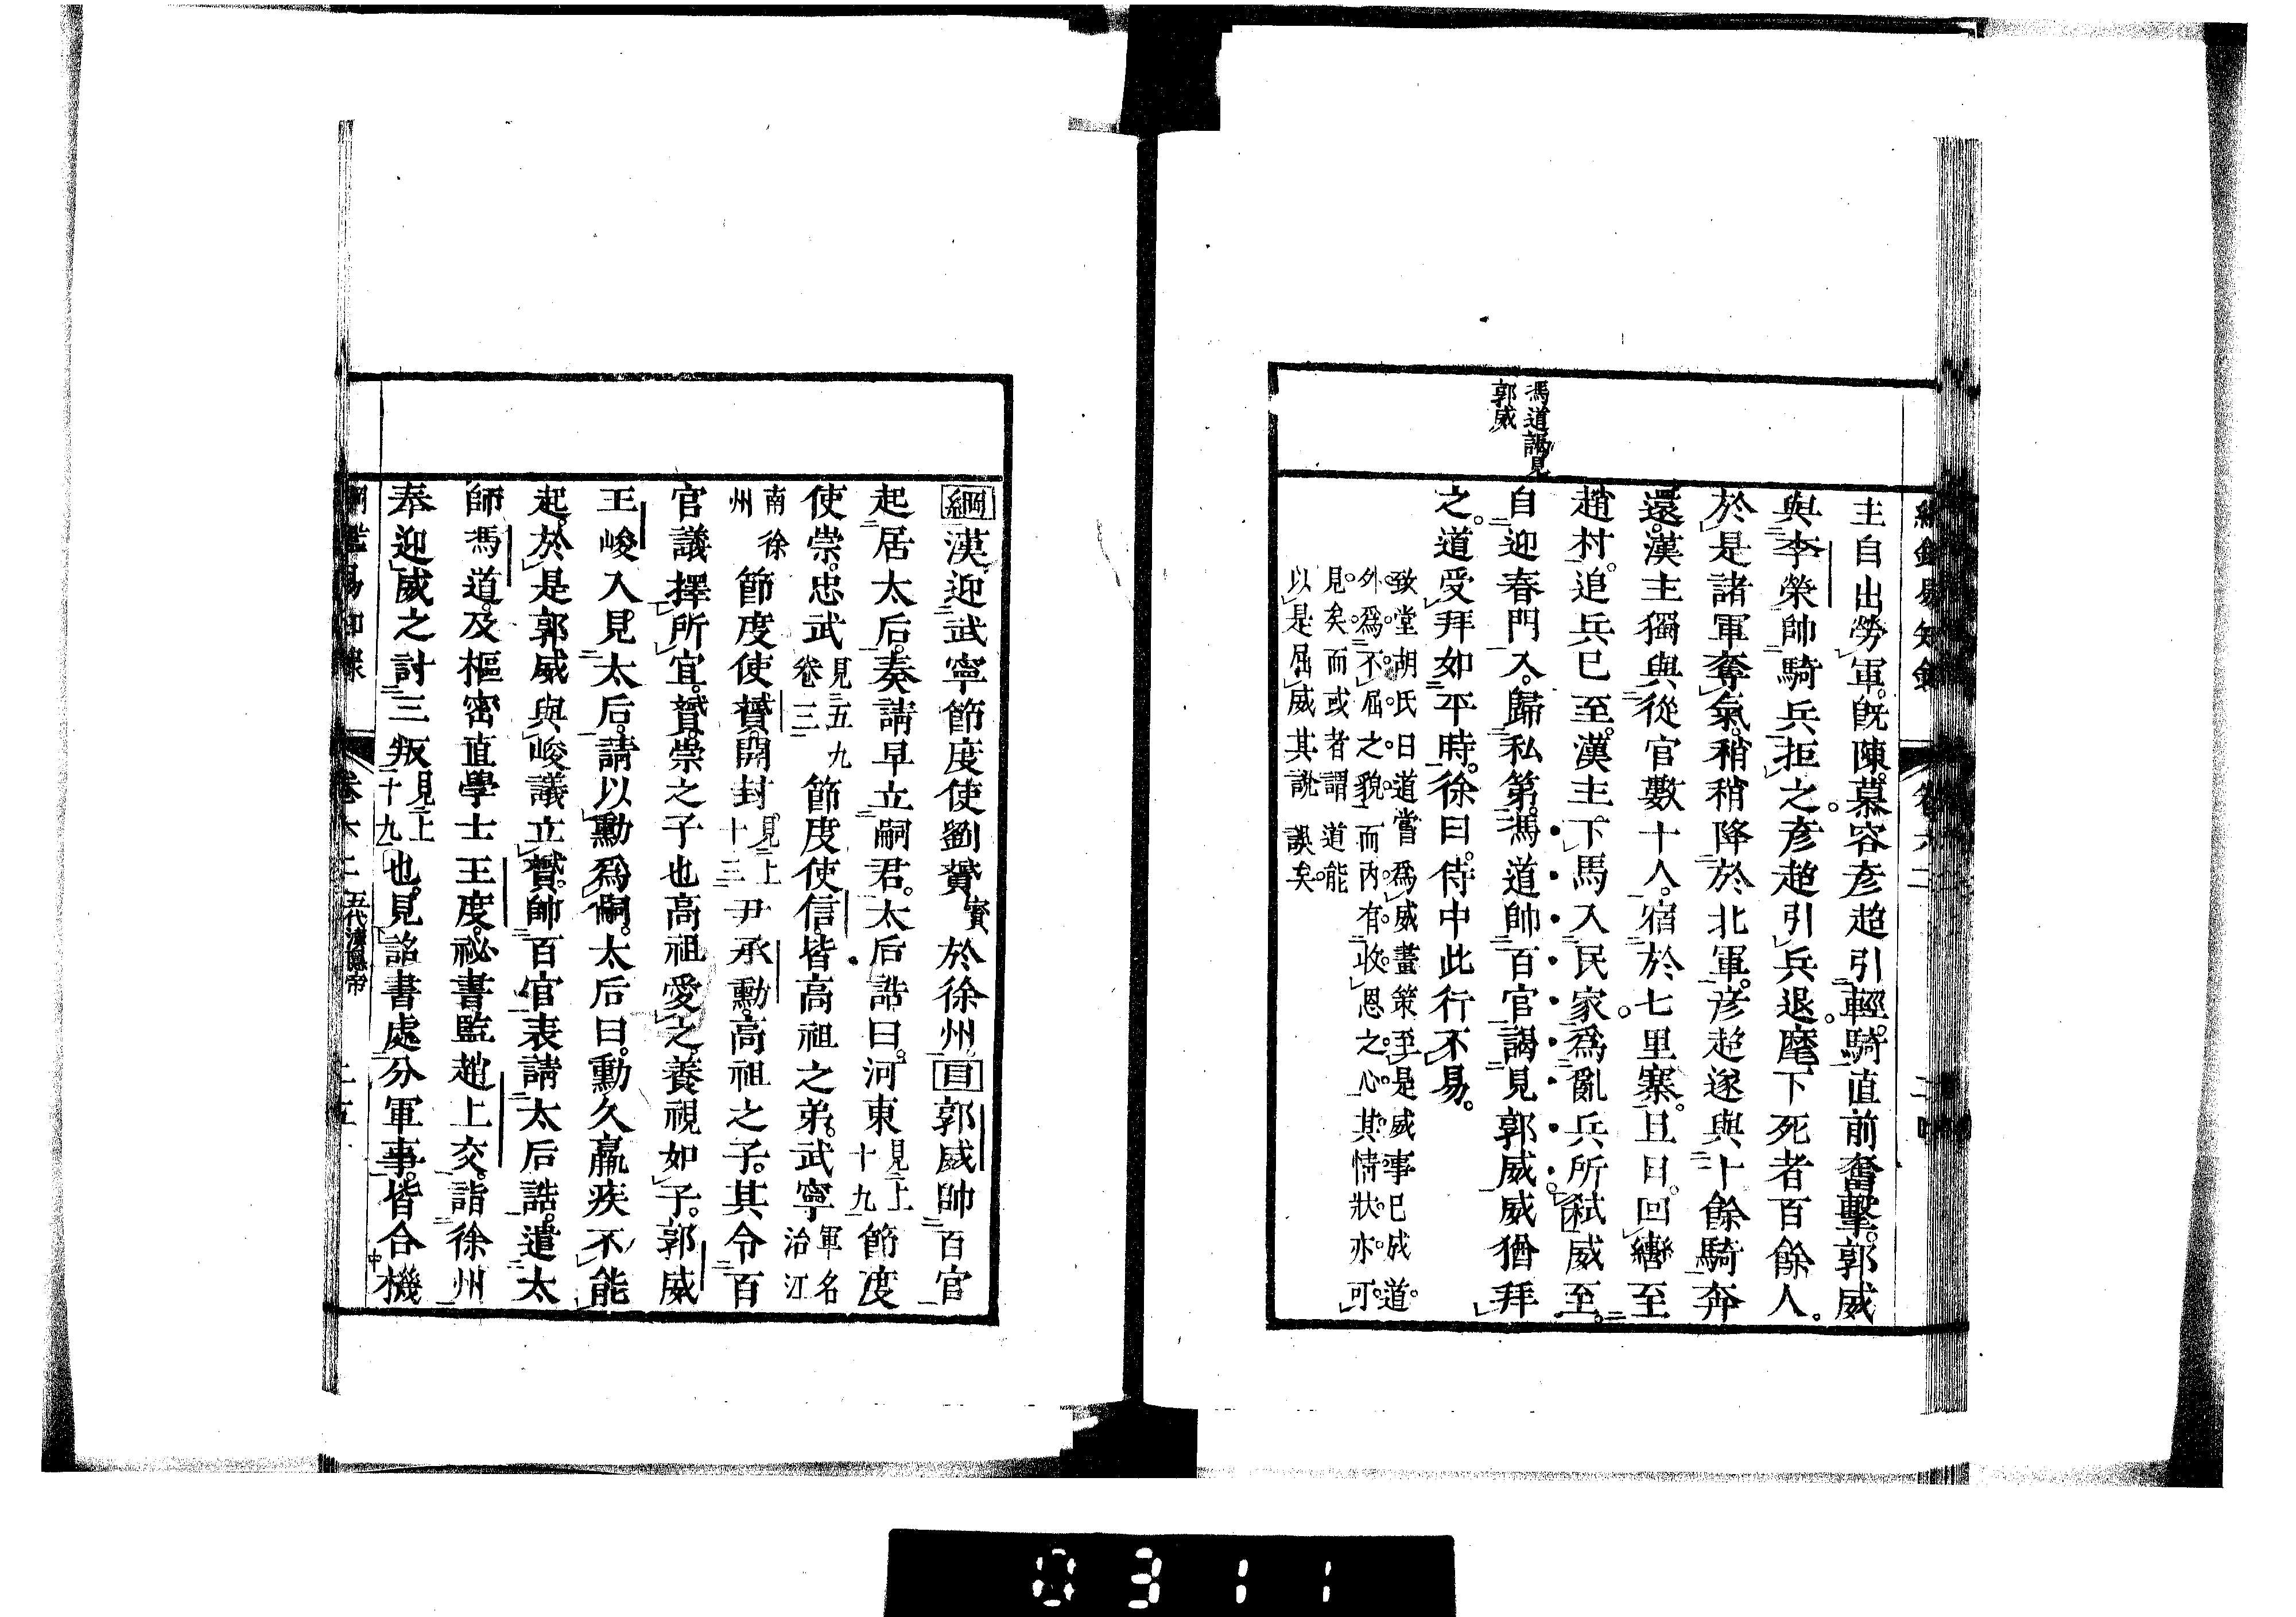 馮道謁見
郭威
主自出勞軍。既陳。慕容彥超引輕騎直前奮擊。郭威
與李榮帥騎兵拒之。彥超引兵退。麾下死者百餘人。
於是諸軍奪氣。稍稍降於北軍。彥超遂與十餘騎奔
還。漢主獨與從官數十人。宿於七里寨。旦日。回轡至
趙村。追兵已至。漢主下馬入民家。爲亂兵所弑。威至。
自迎春門入。歸私第。馮道帥百官謁見郭威。威猶拜
之。道受拜如平時。徐曰。侍中此行不易。
致堂胡氏曰道嘗爲威畫策至是威事已成道
外爲不屈之貌而内有收恩之心其情狀亦可
見矣而或者謂道能
以是屈威其說誤矣
綱漢迎武寧節度使劉贇賓於徐州。目郭威帥百官
起居太后。奏請早立嗣君。太后誥曰。河東見上十九節度
使崇。忠武見五九卷三節度使信。皆高祖之弟。武寧軍名治江
南徐州節度使贇。開封見上十三尹承勳。高祖之子。其令百
官議擇所宜。贇。崇之子也高祖愛之。養視如子。郭威
王峻入見太后。請以勳爲嗣。太后曰。勳久羸疾不能
起。於是郭威與峻議立贇。帥百官表請太后誥。遣太
師馮道。及樞密直學士王度。祕書監趙上交。詣徐州
奉迎威之討三叛見上十九也。見詔書處分軍事。皆合機
卷六二 五代漢隱帝
0311